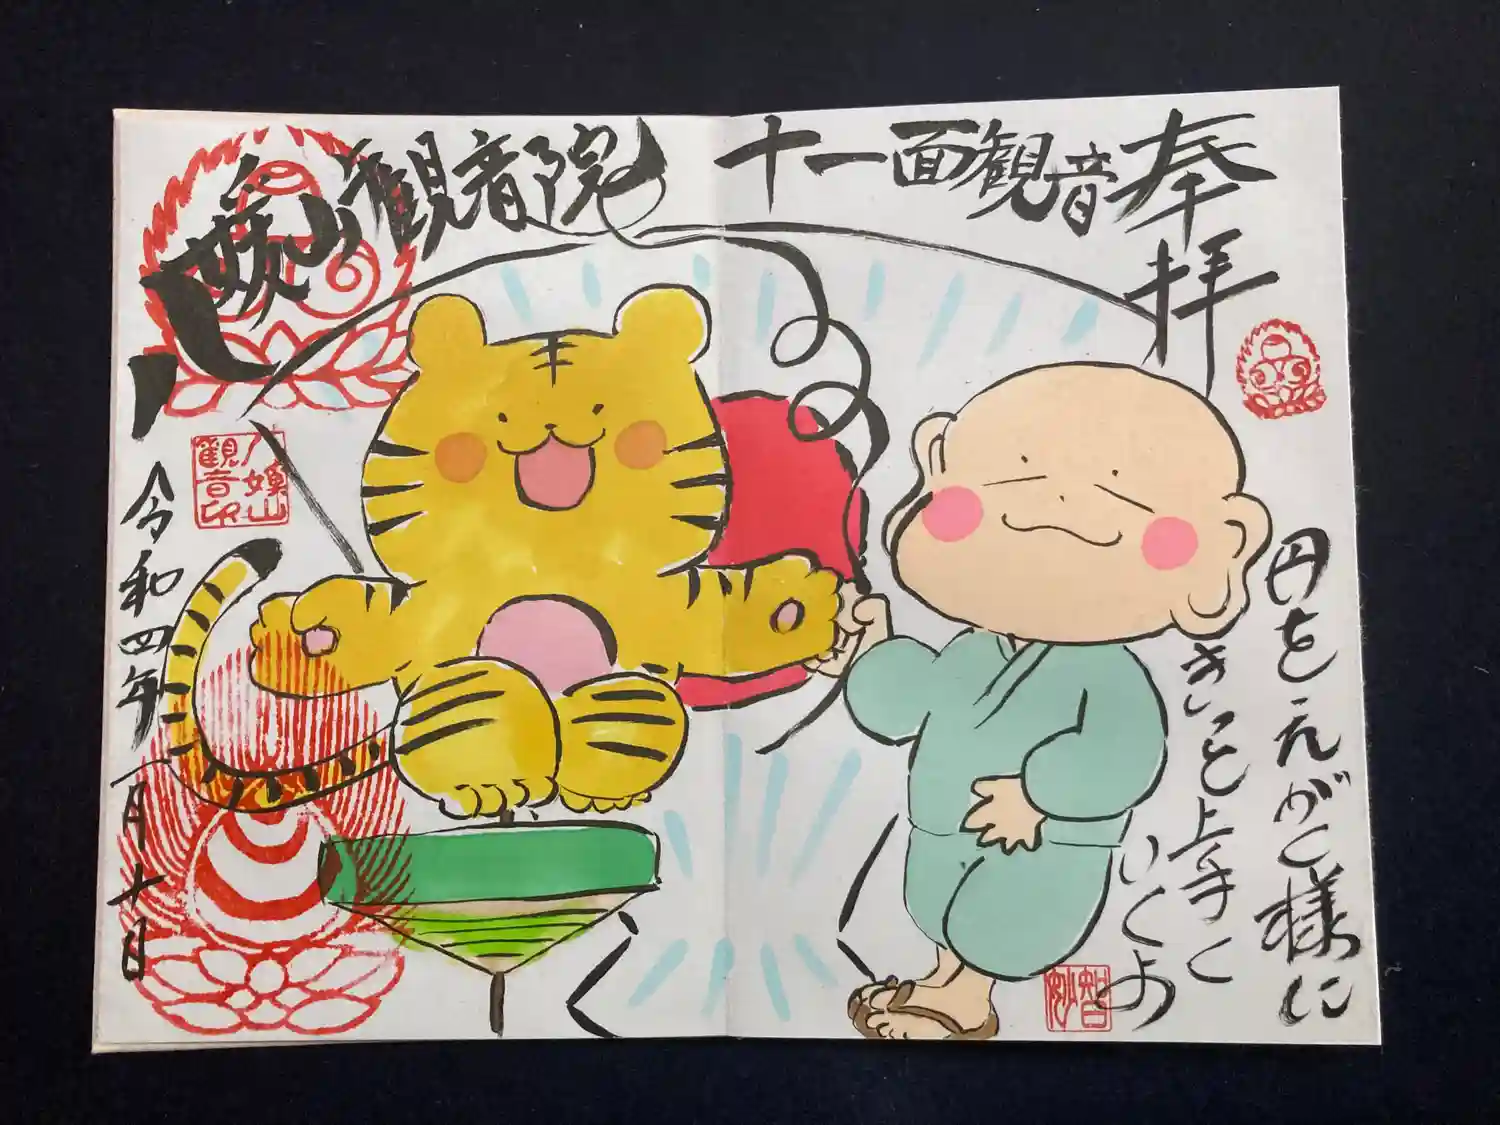 奉拝
十一面観音
円をえがく様に
きっと上手く
いくよ
智
妙
八嬢山観音院
観音印
令和四年
一月十日